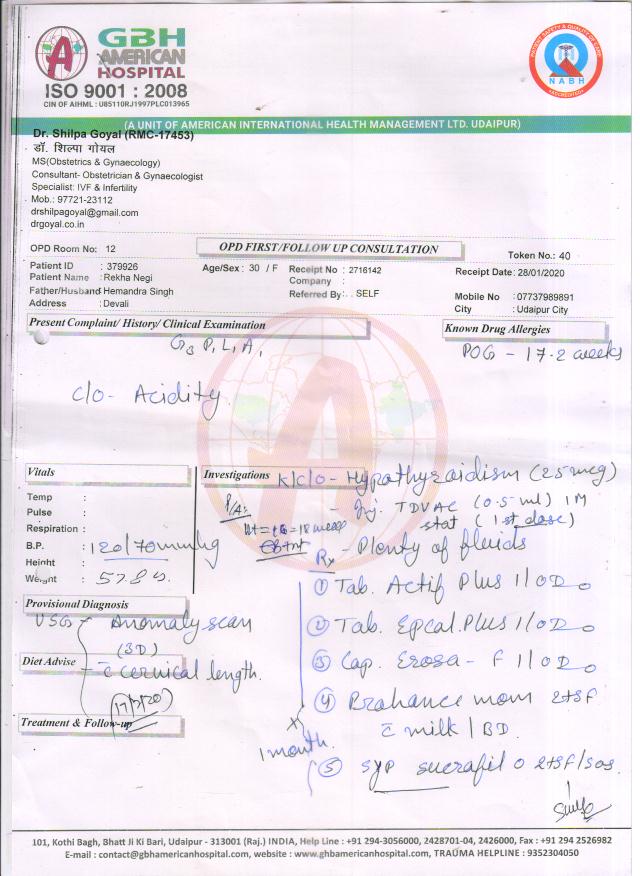 GBH
AMERICAN
HOSPITAL
ISO 9001 : 2008
CIN OF AIHML : U85110RJ1997PLC013965
PATIENT SAFETY & QUALITY OF CARE
NABH
ACCREDITED
(A UNIT OF AMERICAN INTERNATIONAL HEALTH MANAGEMENT LTD. UDAIPUR)
Dr. Shilpa Goyal (RMC-17453)
डॉ. शिल्पा गोयल
MS(Obstetrics & Gynaecology)
Consultant- Obstetrician & Gynaecologist
Specialist: IVF & Infertility
Mob.: 97721-23112
drshilpagoyal@gmail.com
drgoyal.co.in
OPD Room No: 12
OPD FIRST/FOLLOW UP CONSULTATION
Token No.: 40
Patient ID : 379926
Age/Sex : 30 / F
Receipt No : 2716142
Receipt Date: 28/01/2020
Patient Name : Rekha Negi
Company :
Father/Husband Hemandra Singh
Referred By: . SELF
Mobile No : 07737989891
Address : Devali
City : Udaipur City
Present Complaint/ History/ Clinical Examination
Known Drug Allergies
G3 P1 L1 A1
POG - 17.2 weeks
c/o - Acidity
Vitals
Investigations
K/c/o - Hypothyroidism (25 mcg)
Temp :
P/A:
- Inj. TDVAC (0.5 ml) IM
Pulse :
stat (1st dose)
Respiration :
B.P. : 120/70 mmhg
Rx - Plenty of fluids
Heinht :
Weight : 57.8
① Tab. Actif Plus 1/OD
Provisional Diagnosis
USG - Anomaly scan
② Tab. Epcal.Plus 1/OD
(3D)
Diet Advise
- c̄ cervical length.
③ Cap. Erosa - F 1/OD
④ Prohance mom 2tsf
c̄ milk / BD.
Treatment & Follow-up
x
1 month.
⑤ Syp sucrafil O 2tsf/sos
101, Kothi Bagh, Bhatt Ji Ki Bari, Udaipur - 313001 (Raj.) INDIA, Help Line : +91 294-3056000, 2428701-04, 2426000, Fax : +91 294 2526982
E-mail : contact@gbhamericanhospital.com, website : www.gbhamericanhospital.com, TRAUMA HELPLINE : 9352304050